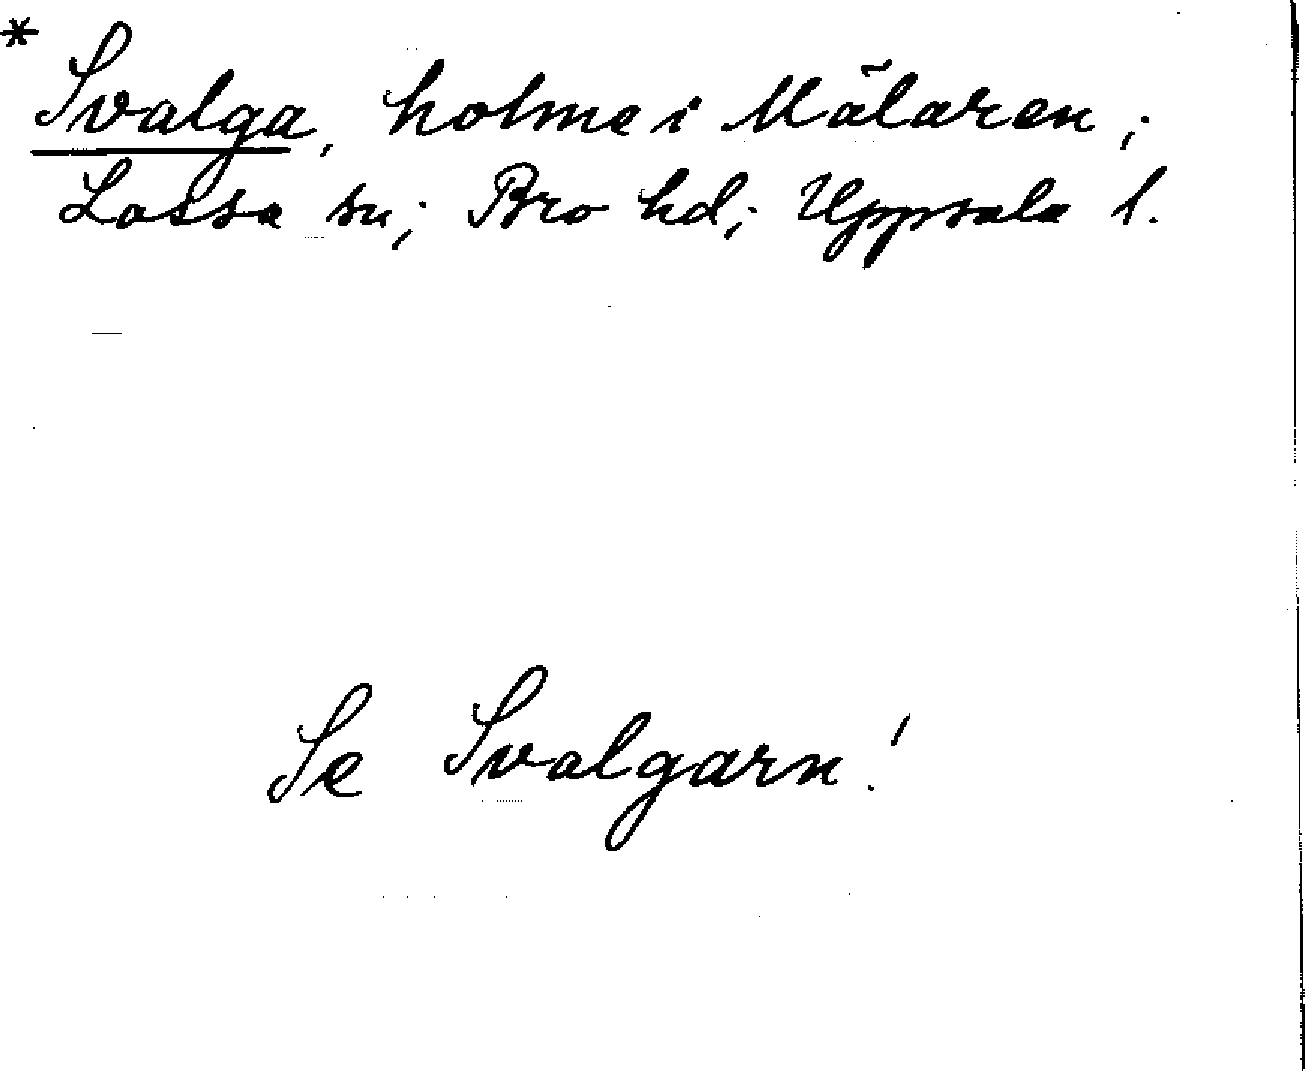 * Svalga, holme i Mälaren;
Lossa sn; Bro hd; Uppsala l.
Se Svalgarn!